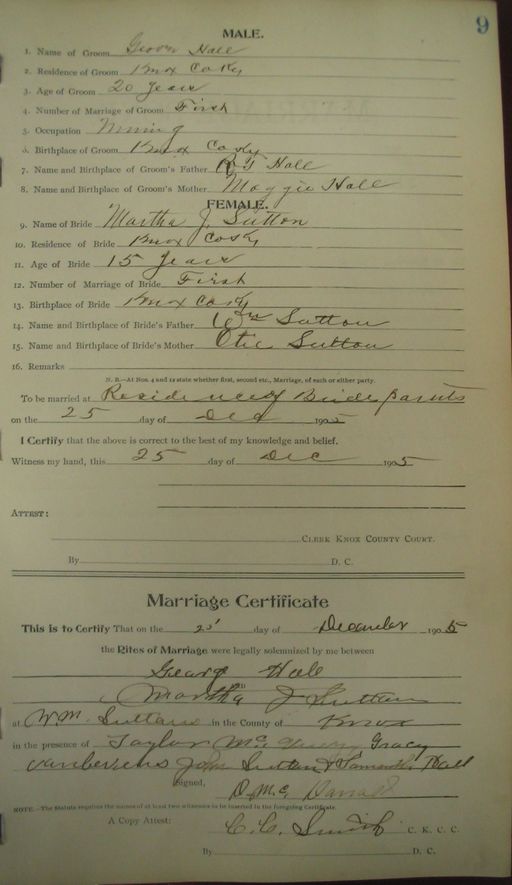 9
MALE.
1. Name of Groom Grover Hall
2. Residence of Groom Knox Co Ky
3. Age of Groom 20 Years
4. Number of Marriage of Groom First
5. Occupation Mining
6. Birthplace of Groom Knox Co Ky
7. Name and Birthplace of Groom's Father Hall
8. Name and Birthplace of Groom's Mother Maggie Hall
FEMALE.
9. Name of Bride Martha J. Sutton
10. Residence of Bride Knox Co Ky
11. Age of Bride 15 Years
12. Number of Marriage of Bride First
13. Birthplace of Bride Knox Co Ky
14. Name and Birthplace of Bride's Father Wm Sutton
15. Name and Birthplace of Bride's Mother Otie Sutton
16. Remarks
N. B.—At Nos. 4 and 12 state whether first, second etc., Marriage, of each or either party.
To be married at Residence of Brides parents
on the 25 day of Dec 1905
I Certify that the above is correct to the best of my knowledge and belief.
Witness my hand, this 25 day of Dec 1905
ATTEST:
CLERK KNOX COUNTY COURT.
By D. C.
Marriage Certificate
This is to Certify That on the 25 day of December 1905
the Rites of Marriage were legally solemnized by me between
Hall
Martha J Sutton
at W.M. Suttons in the County of Knox
in the presence of Taylor Gracy
John Sutton & Hall
Signed,
NOTE.—The Statute requires the names of at least two witnesses to be inserted in the foregoing Certificate.
A Copy Attest: C. C. Smith C. K. C. C.
By D. C.